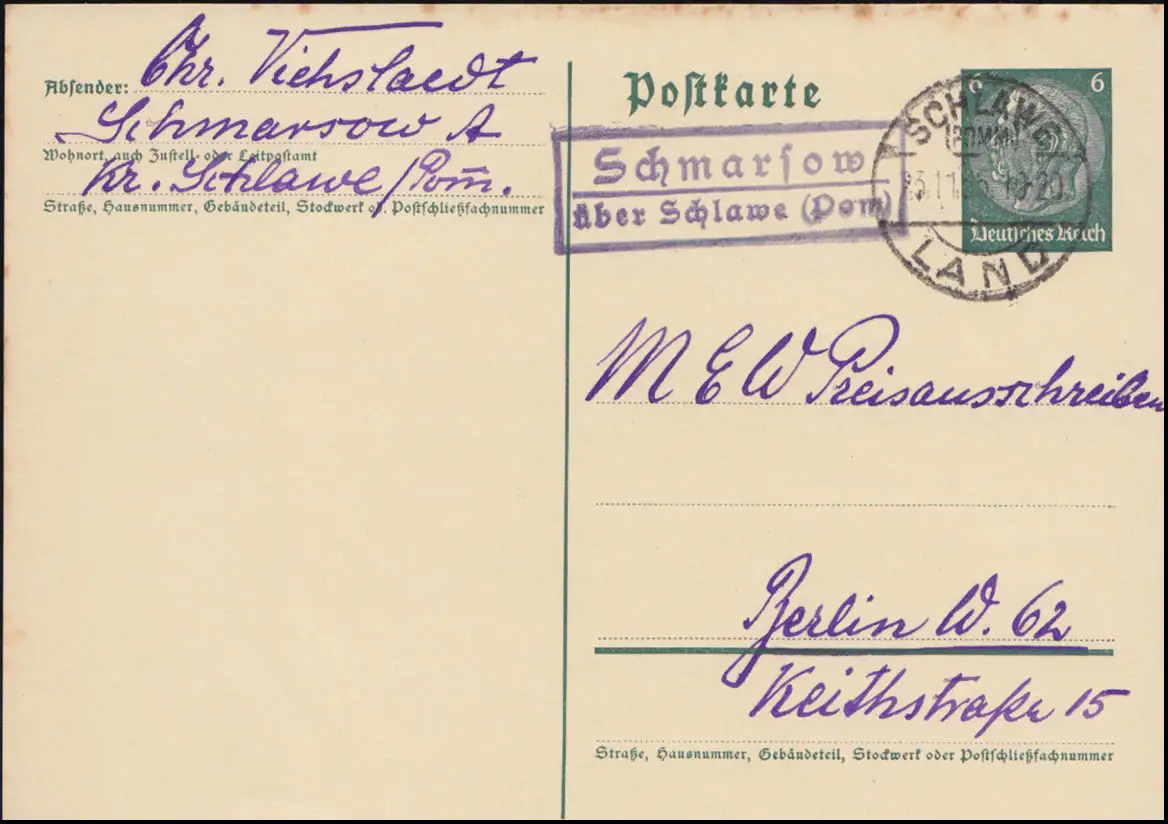 Absender: Chr. Viehstaedt
Schmarsow A
Wohnort, auch Zustell- oder Leitpostamt
Kr. Schlawe/Pom.
Straße, Hausnummer, Gebäudeteil, Stockwerk od. Postschließfachnummer
Postkarte
6 6
Deutsches Reich
SCHLAWE
(POMM)
LAND
Schmarsow
über Schlawe (Pom)
M E W Preisausschreiben
Berlin W. 62
Keithstraße 15
Straße, Hausnummer, Gebäudeteil, Stockwerk oder Postschließfachnummer